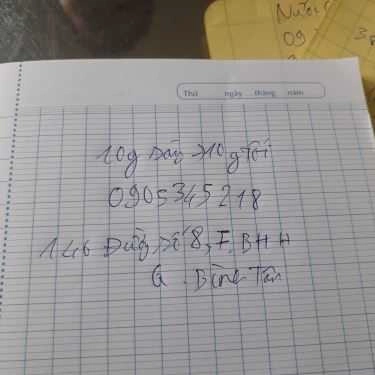 Nước
09
38
Thứ ngày tháng năm
10g sáng → 10g Tối
0905345218
146 Đường Số 8, F. BHH
Q. Bình Tân